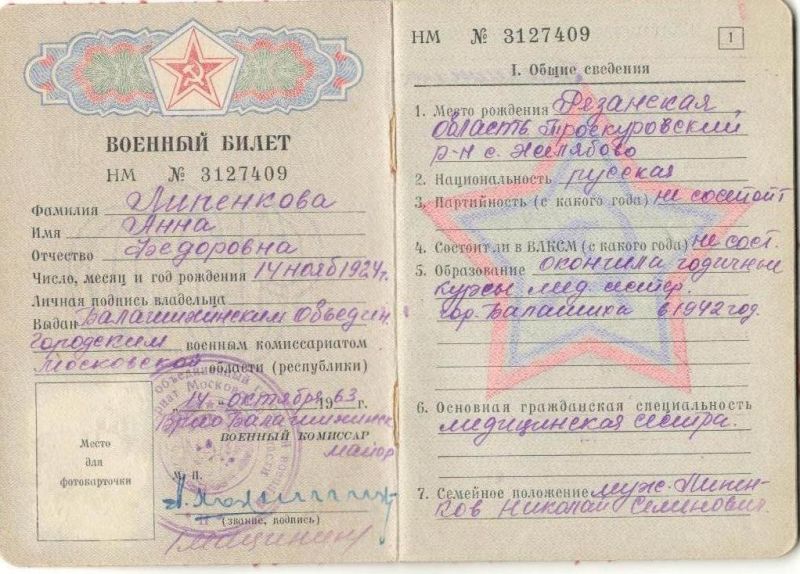 ВОЕННЫЙ БИЛЕТ
НМ № 3127409
Фамилия Липенкова
Имя Анна
Отчество Федоровна
Число, месяц и год рождения 14 нояб 1924 г.
Личная подпись владельца
Выдан Балашихинским Объедин.
городским военным комиссариатом
Московской области (республики)
"14" октября 1963 г.
Врио Балашихинск
ВОЕННЫЙ КОМИССАР
майор
Место
для
фотокарточки
М. П.
(звание, подпись)
НМ № 3127409
1
I. Общие сведения
1. Место рождения Рязанская
область Троекуровский
р-н с. Желябово
2. Национальность русская
3. Партийность (с какого года) не состоит
4. Состоит ли в ВЛКСМ (с какого года) не сост.
5. Образование окончила годичные
курсы мед. сестер.
гор. Балашиха в 1942 год.
6. Основная гражданская специальность
медицинская сестра.
7. Семейное положение муж-Липен-
ков Николай Семенович.